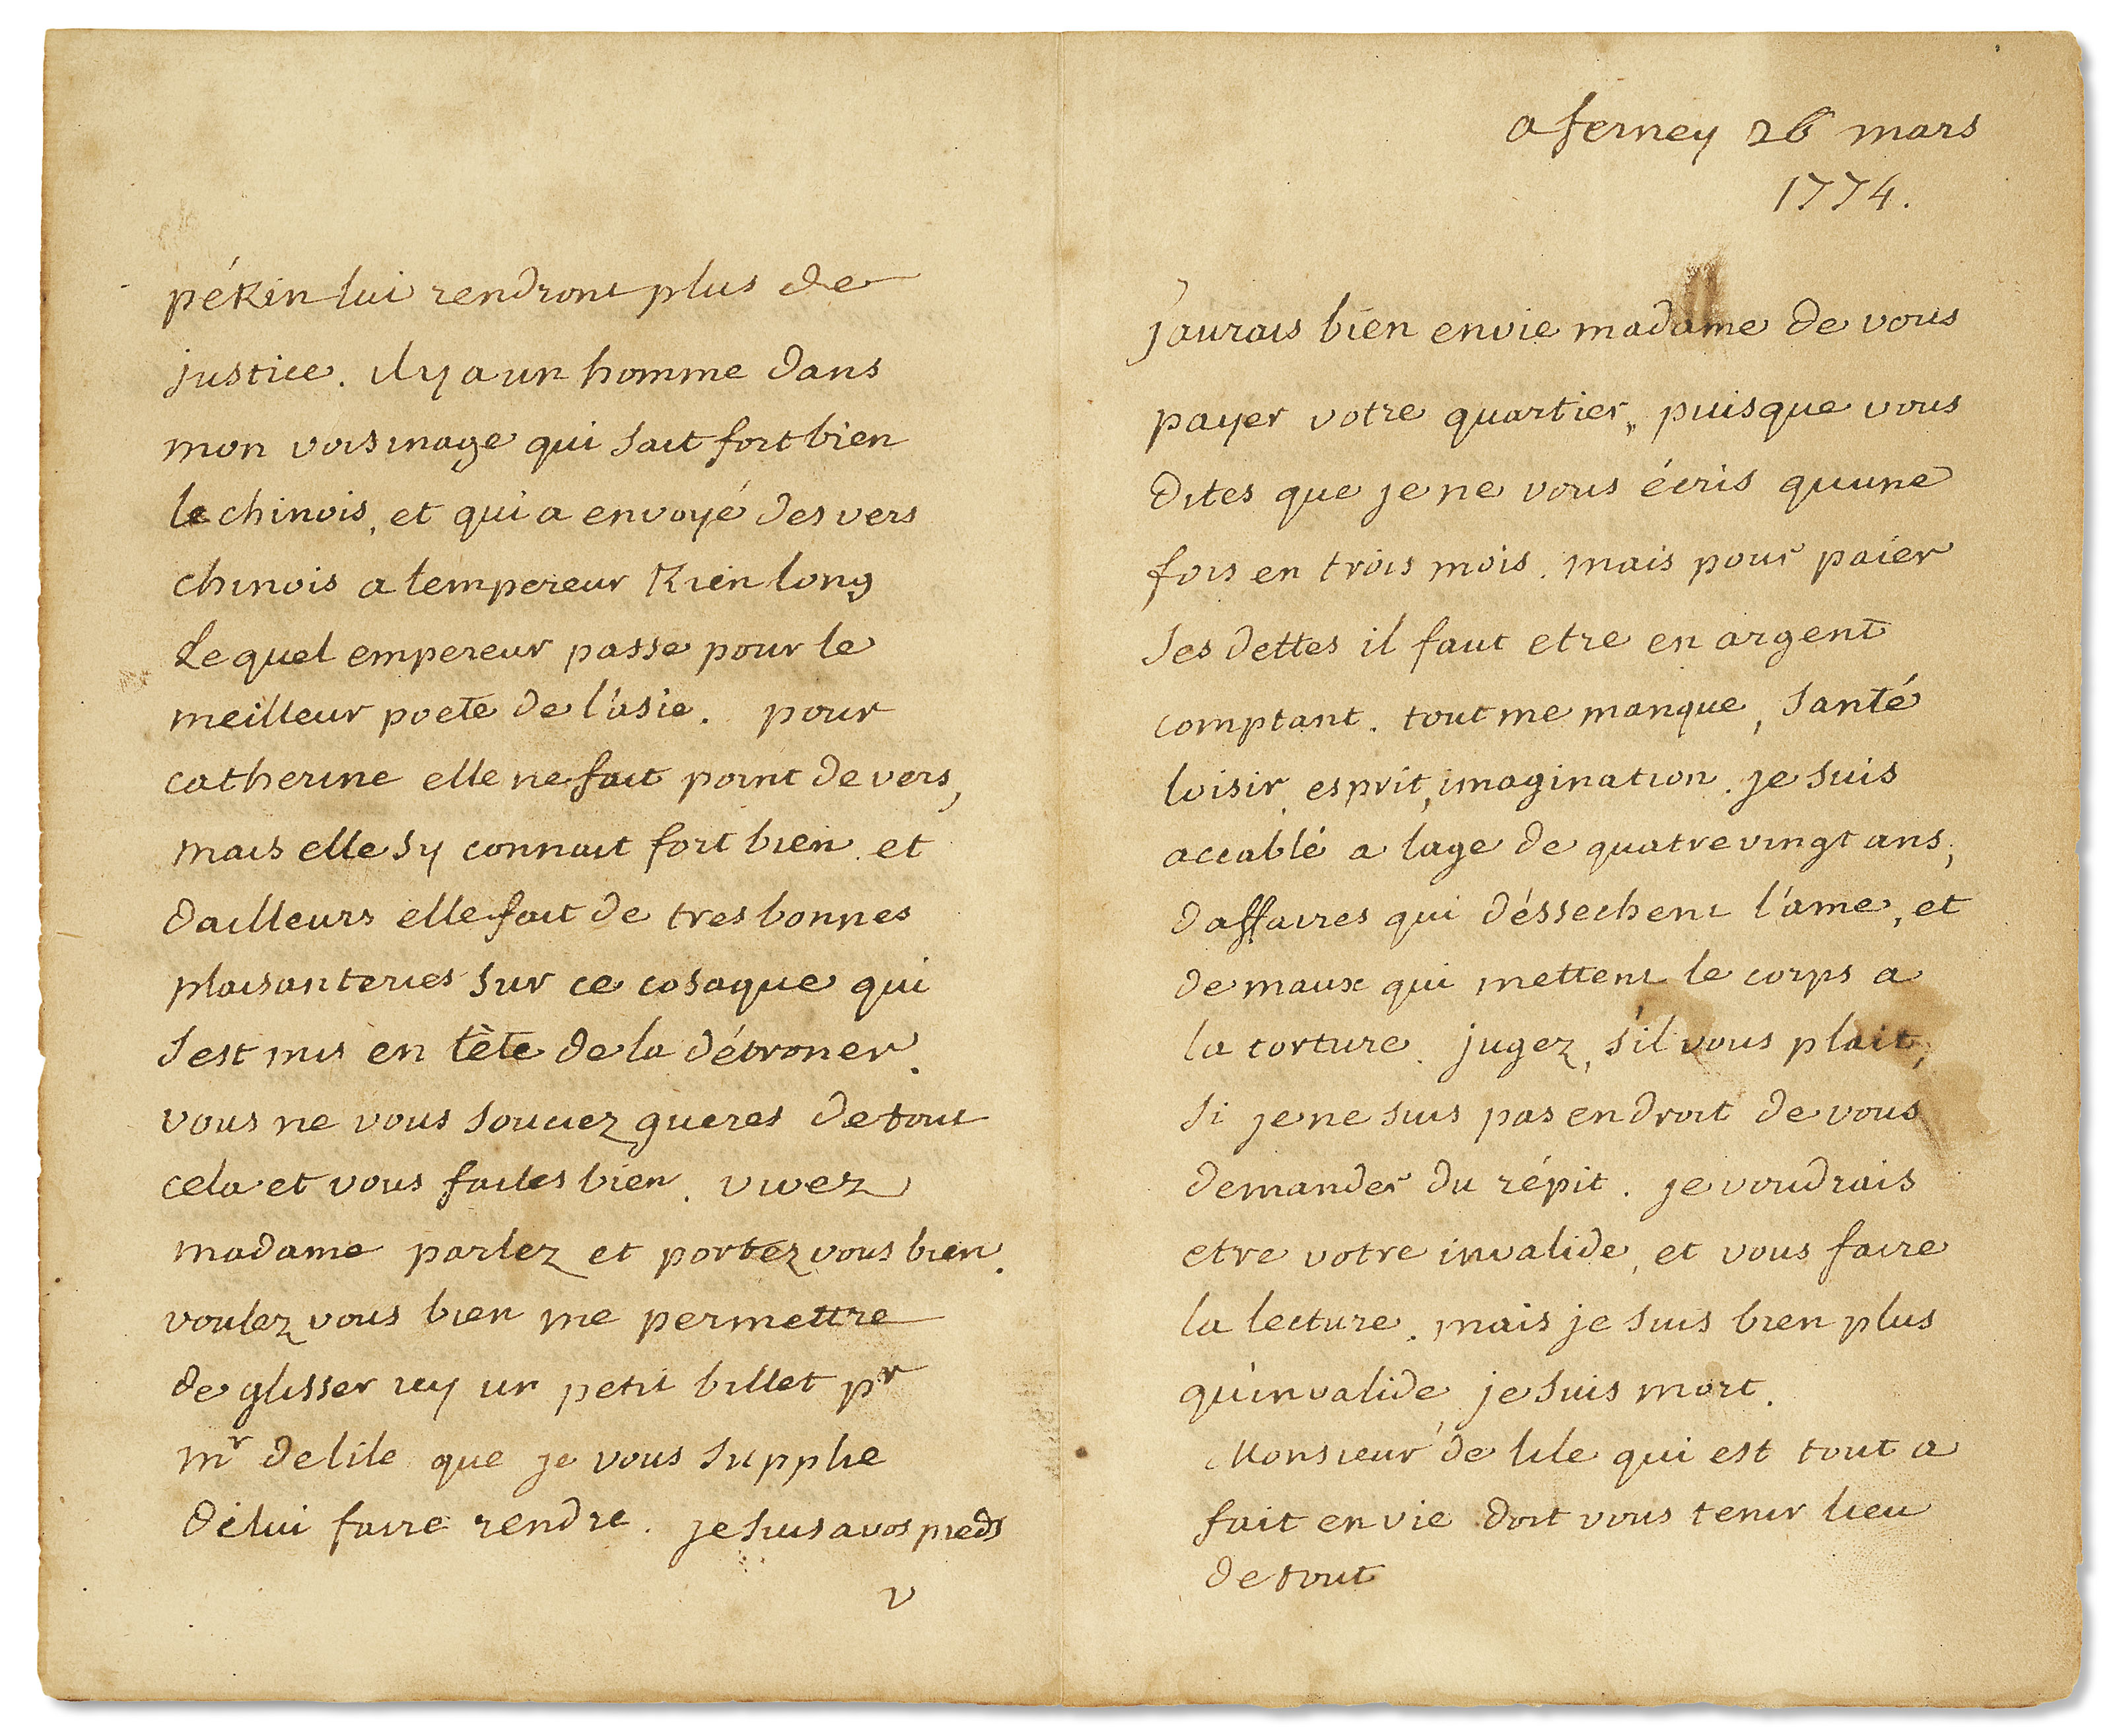 a ferney 26 mars
1774.
j'aurais bien envie madame de vous
payer votre quartier, puisque vous
dites que je ne vous écris quune
fois en trois mois. mais pour paier
ses dettes il faut etre en argent
comptant. tout me manque, santé
loisir, esprit, imagination. je suis
accablé a lage de quatrevingt ans,
daffaires qui désséchent l'ame, et
de maux qui mettent le corps a
la torture. jugez, s'il vous plait,
si je ne suis pas en droit de vous
demander du répit. je voudrais
etre votre invalide, et vous faire
la lecture. mais je suis bien plus
qu'invalide je suis mort.
Monsieur de lile qui est tout a
fait en vie doit vous tenir lieu
de tout
pékin lui rendront plus de
justice. il y a un homme dans
mon voisinage qui sait fort bien
le chinois, et qui a envoyé des vers
chinois a lempereur Kien long
Lequel empereur passe pour le
meilleur poete de l'asie. pour
catherine elle ne fait point de vers,
mais elle sy connait fort bien. et
dailleurs elle fait de tres bonnes
plaisanteries sur ce cosaque qui
sest mis en tète de la détroner.
vous ne vous souciez gueres de tout
cela et vous faites bien. vivez
madame parlez et portez vous bien.
voulez vous bien me permettre
de glisser icy un petit billet pr
mr delile que je vous supplie
de lui faire rendre. je suis a vos pieds
V